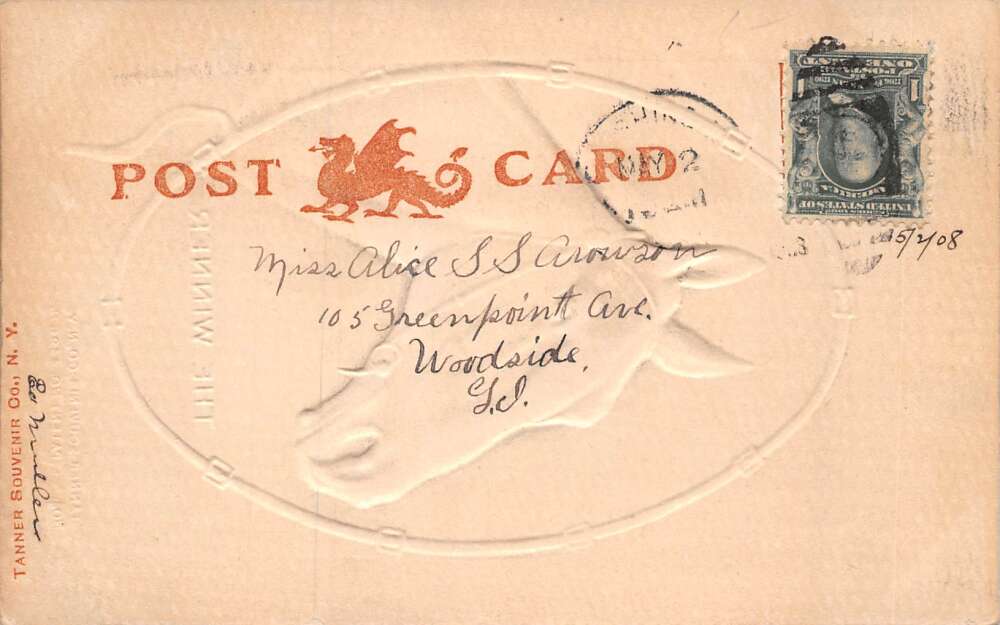 POST CARD
MAY 2
ONE CENT
1 1
UNITED STATES OF
AMERICA
5/2/08
Miss Alice S S Arowson
105 Greenpoint Ave.
Woodside,
L.I.
THE WINNER
TANNER SOUVENIR CO., N. Y.